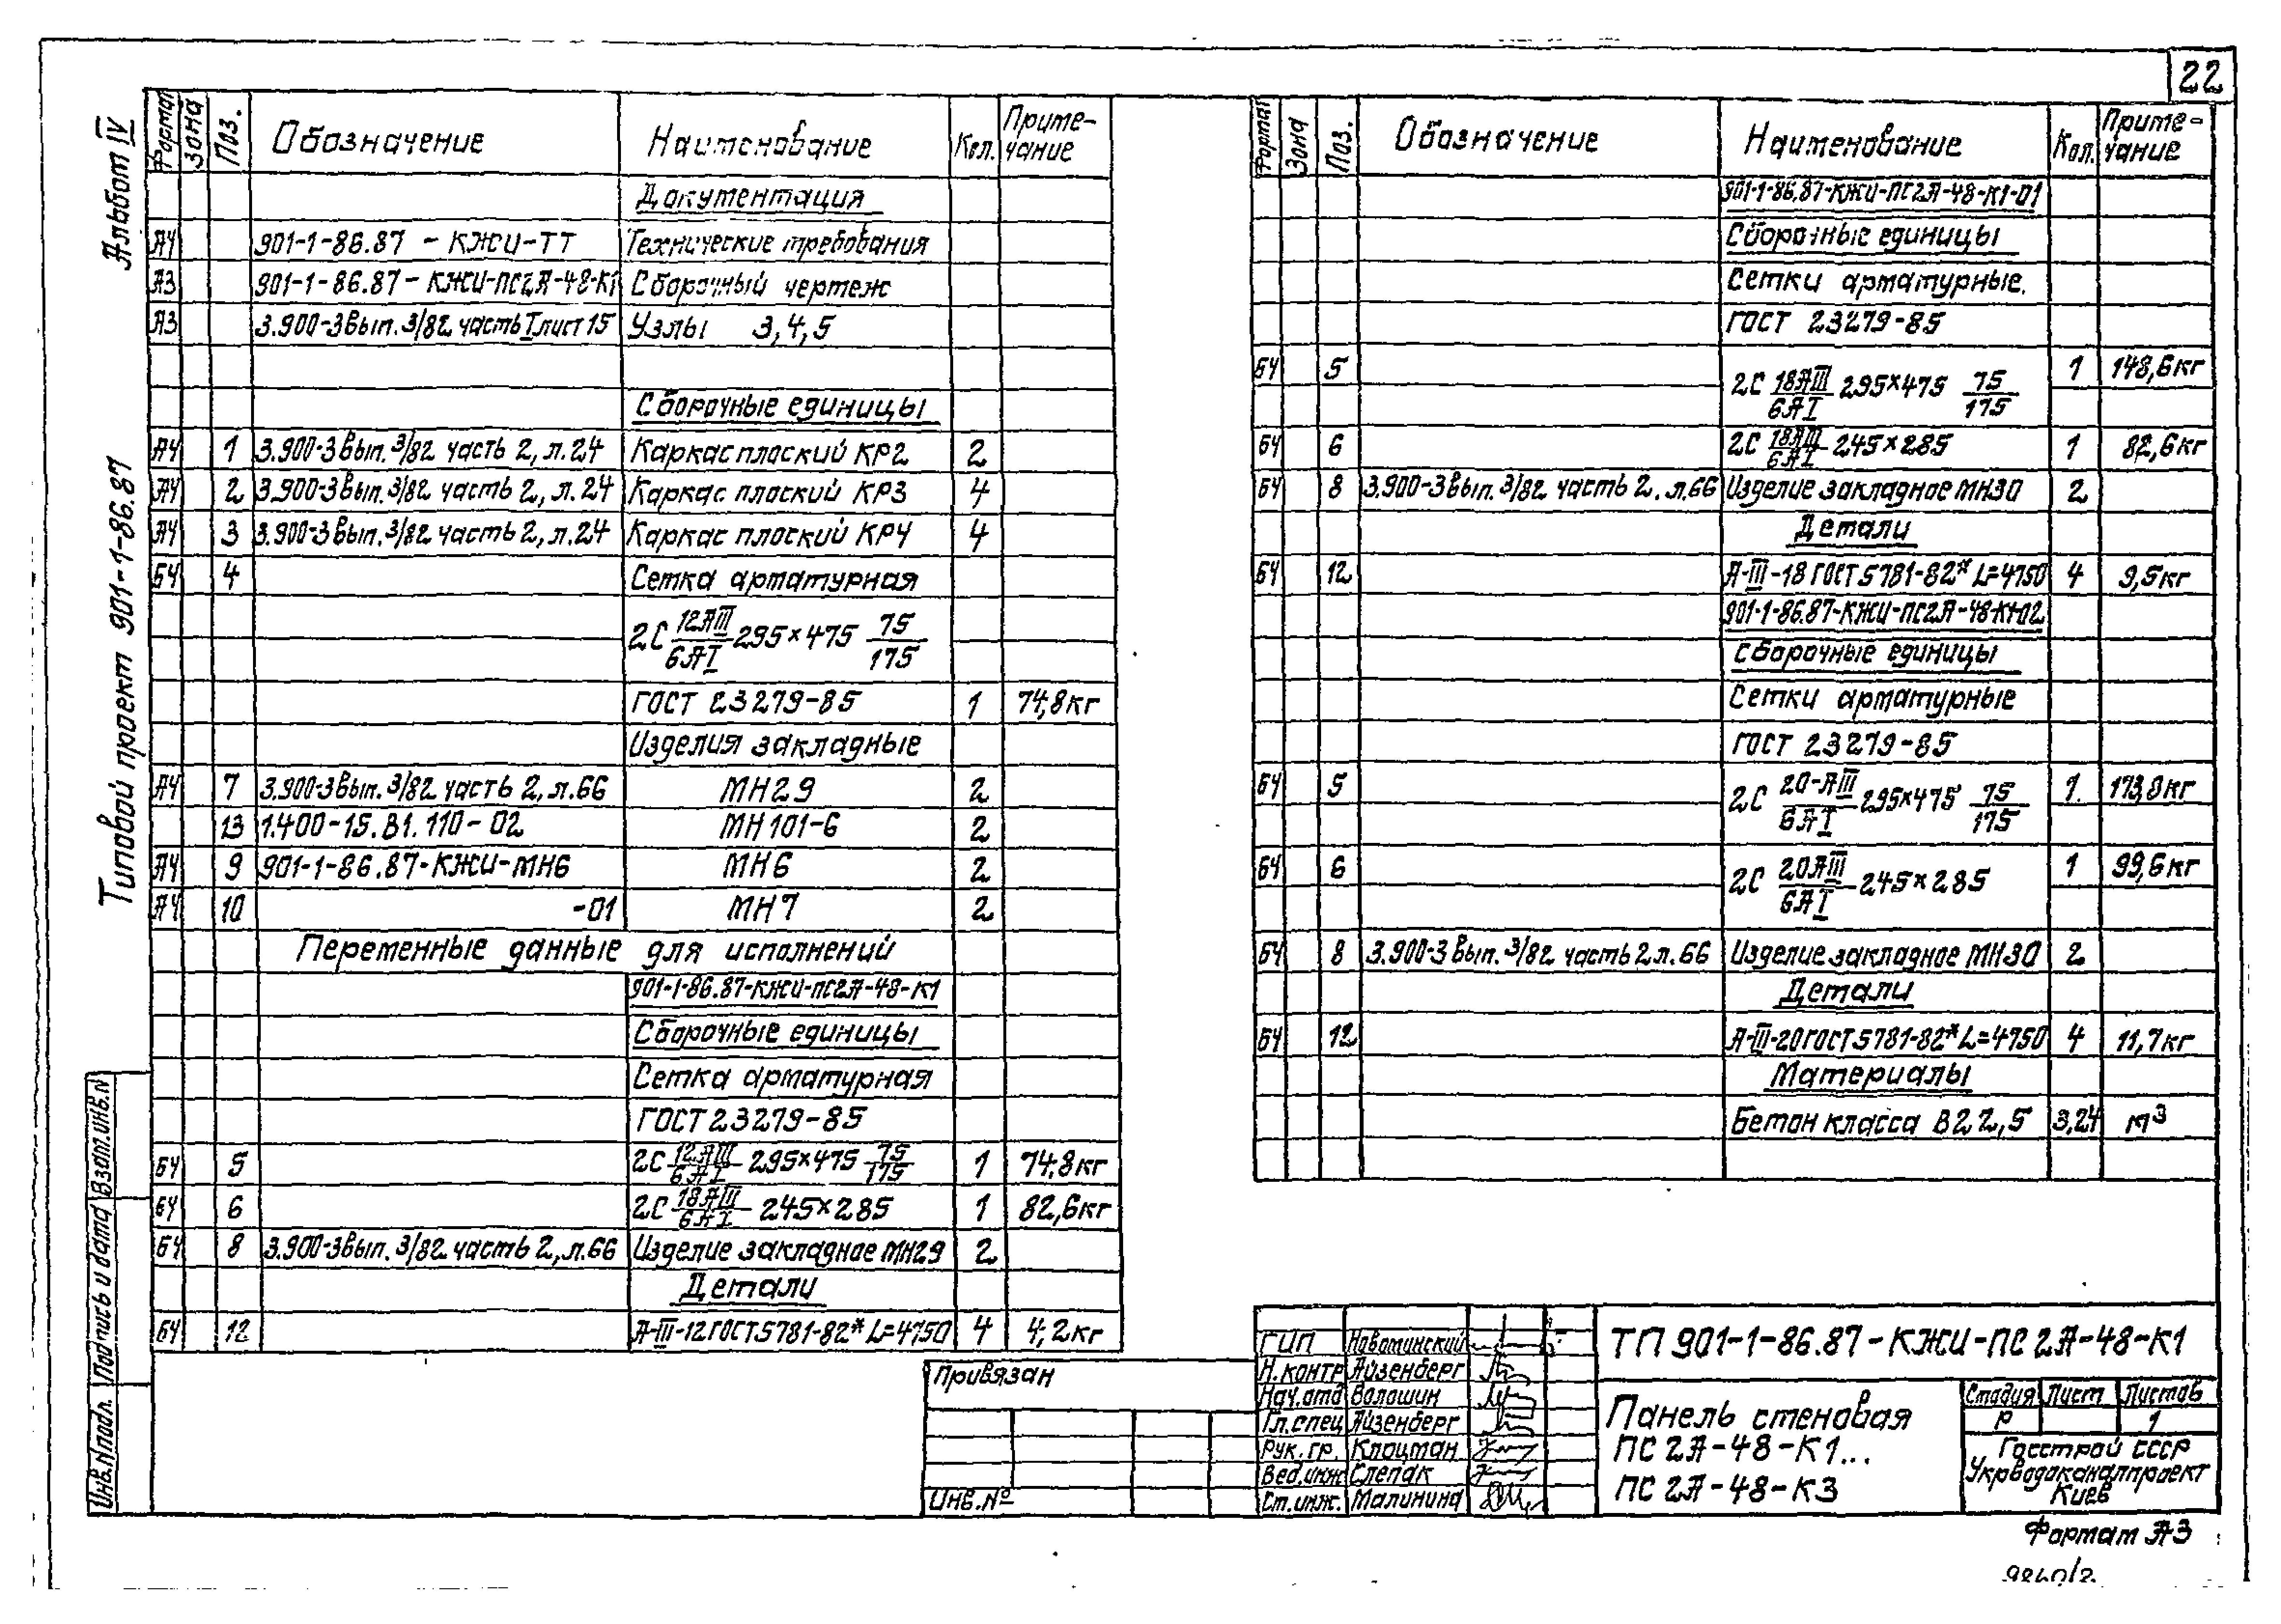 22
Альбом IV
Типовой проект 901-1-86.87
Формат Зона Поз. Обозначение Наименование Кол. Примечание
Документация
А4 901-1-86.87-КЖИ-ТТ Технические требования
А3 901-1-86.87-КЖИ-ПС2А-48-К1 Сборочный чертеж
А3 3.900-3 вып. 3/82 часть I лист 15 Узлы 3,4,5
Сборочные единицы
А4 1 3.900-3 вып. 3/82 часть 2, л.24 Каркас плоский КР2 2
А4 2 3.900-3 вып. 3/82 часть 2, л.24 Каркас плоский КР3 4
А4 3 3.900-3 вып. 3/82 часть 2, л.24 Каркас плоский КР4 4
БЧ 4 Сетка арматурная
2С 12АIII/6АI 295×475 75/175
ГОСТ 23279-85 1 74,8кг
Изделия закладные
А4 7 3.900-3 вып. 3/82 часть 2, л.66 МН29 2
13 1.400-15.В1.110-02 МН101-6 2
А4 9 901-1-86.87-КЖИ-МН6 МН6 2
А4 10 -01 МН7 2
Переменные данные для исполнений
901-1-86.87-КЖИ-ПС2А-48-К1
Сборочные единицы
Сетка арматурная
ГОСТ 23279-85
БЧ 5 2С 12АIII/6АI 295×475 75/175 1 74,8кг
БЧ 6 2С 18АIII/6АI 245×285 1 82,6кг
БЧ 8 3.900-3 вып. 3/82 часть 2, л.66 Изделие закладное МН29 2
Детали
БЧ 12 А-III-12 ГОСТ 5781-82* L=4750 4 4,2кг
Формат Зона Поз. Обозначение Наименование Кол. Примечание
901-1-86.87-КЖИ-ПС2А-48-К1-01
Сборочные единицы
Сетки арматурные.
ГОСТ 23279-85
БЧ 5 2С 18АIII/6АI 295×475 75/175 1 148,6кг
БЧ 6 2С 18АIII/6АI 245×285 1 82,6кг
БЧ 8 3.900-3 вып. 3/82 часть 2. л.66 Изделие закладное МН30 2
Детали
БЧ 12 А-III-18 ГОСТ 5781-82* L=4750 4 9,5кг
901-1-86.87-КЖИ-ПС2А-48-К1-02
Сборочные единицы
Сетки арматурные
ГОСТ 23279-85
БЧ 5 2С 20-АIII/6АI 295×475 75/175 1 173,0кг
БЧ 6 2С 20АIII/6АI 245×285 1 99,6кг
БЧ 8 3.900-3 вып. 3/82 часть 2 л.66 Изделие закладное МН30 2
Детали
БЧ 12 А-III-20 ГОСТ 5781-82* L=4750 4 11,7кг
Материалы
Бетон класса В22,5 3,24 м3
Инв.N подл. Подпись и дата Взам.инв.N
Привязан
Инв.№
ГИП Новоминский
Н.контр Айзенберг
Нач.отд Волошин
Гл.спец Айзенберг
Рук.гр. Клоцман
Вед.инж Слепак
Ст.инж. Малинина
ТП 901-1-86.87-КЖИ-ПС2А-48-К1
Панель стеновая
ПС 2А-48-К1...
ПС 2А-48-К3
Стадия Лист Листов
Р 1
Госстрой СССР
Укрводоканалпроект
Киев
Формат А3
9840/2